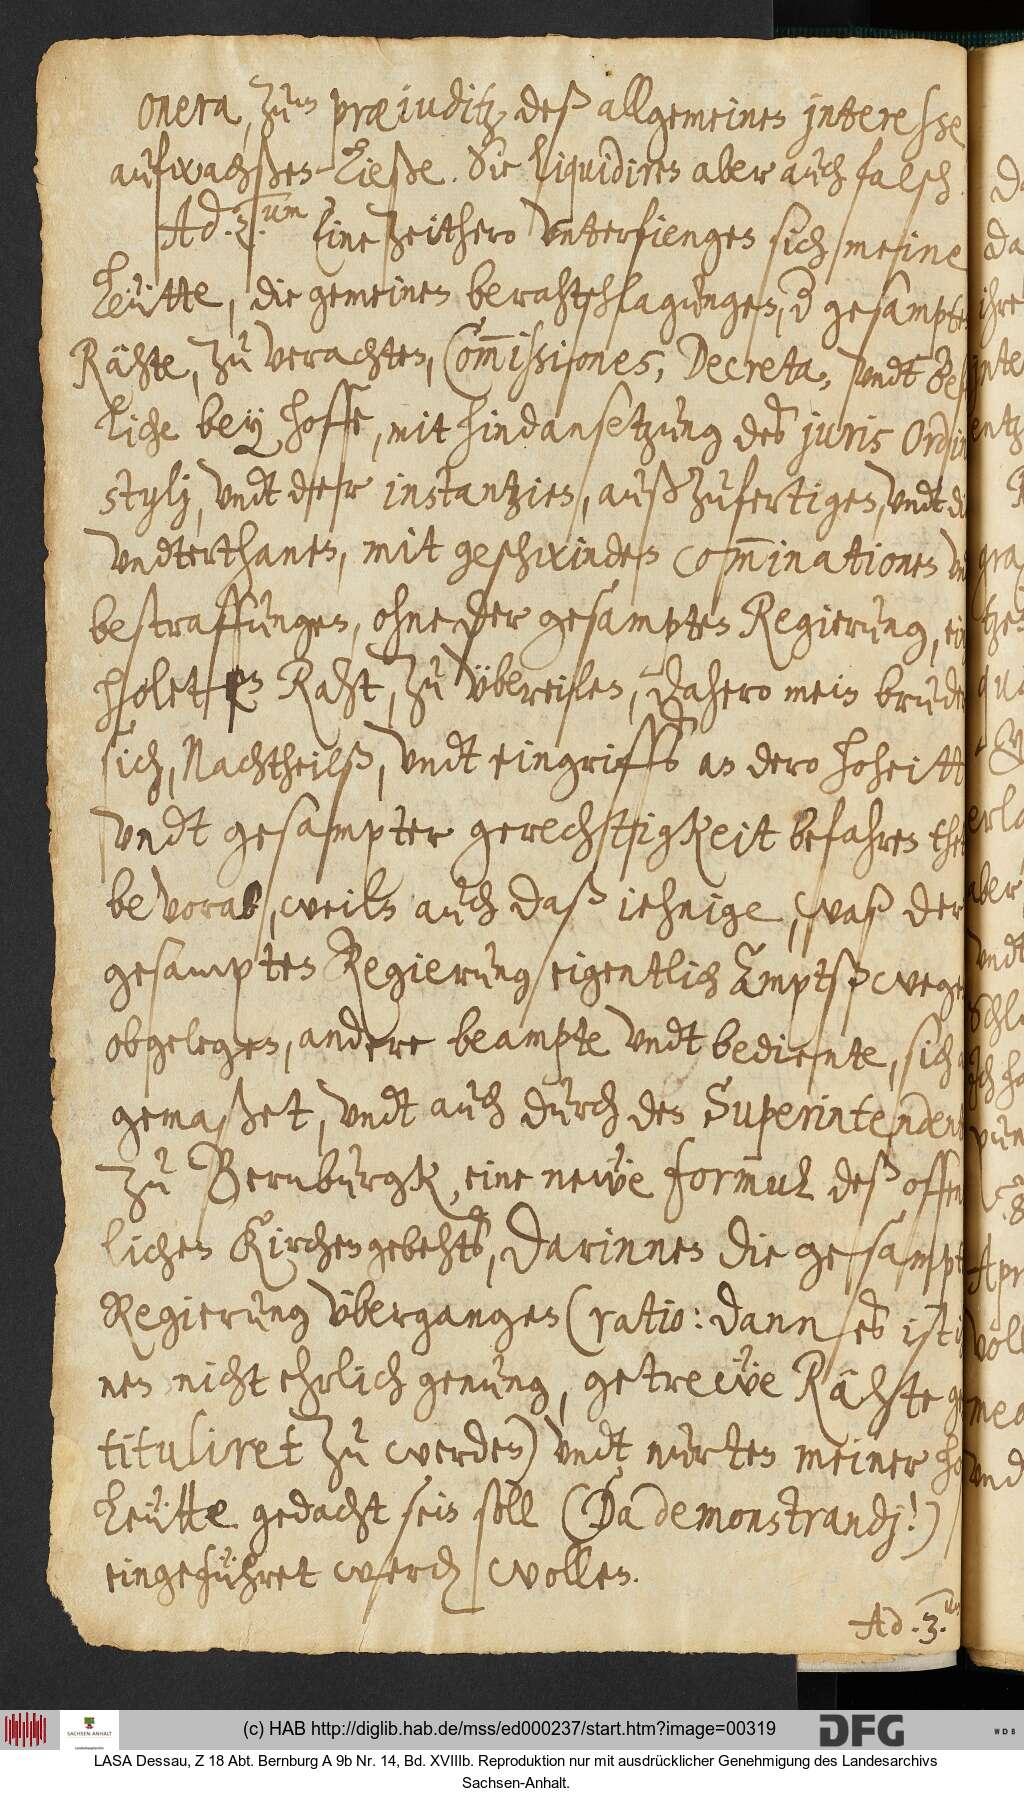 onera, zum præjuditz, deß allgemeinen intteresse
aufwachßen ließe. Sie liquidiren aber auch falsch.
Ad 2.um Eine zeithero vntterfiengen sich meine
Leütte, die gemeinen berahtschlagungen, der gesampten
Rähte, zu verachten, Com̅issiones, Decreta, vndt
liche bey hoffe, mit hindansetzung des juris
stylj, vndt der instantzien, außzufertigen, vndt
vndterthanen, mit geschwinden com̅inationes
bestraffungen, ohne der gesampten Regierung,
holetten Raht, zu übereilen, dahero mein
sich, Nachtheilß, vndt eingriffs an dero hoheitt
vndt gesampter gerechtsigkeit befahren
bevorab, weiln auch daß iehnige, waß der
gesampten Regierung eigentlich Amptß
obgelegen, andere beampte vndt bediente, sich
gemaßet, vndt auch durch den
zu Bernburgk, eine newe form̅ul deß
lichen Kirchengebehts, darinnen die
Regierung übergangen (ratio: dann es ist
nen nicht ehrlich genung, getrewe Rähte
tituliret zu werden) vndt nur ten meiner
Leütte gedacht sein soll (Da demonstrandj!)
eingeführet werden wollen.
Ad. 3.um
(c) HAB http://diglib.hab.de/mss/ed000237/start.htm?image=00319
SACHSEN-ANHALT
DFG
WDB
LASA Dessau, Z 18 Abt. Bernburg A 9b Nr. 14, Bd. XVIIIb. Reproduktion nur mit ausdrücklicher Genehmigung des Landesarchivs
Sachsen-Anhalt.